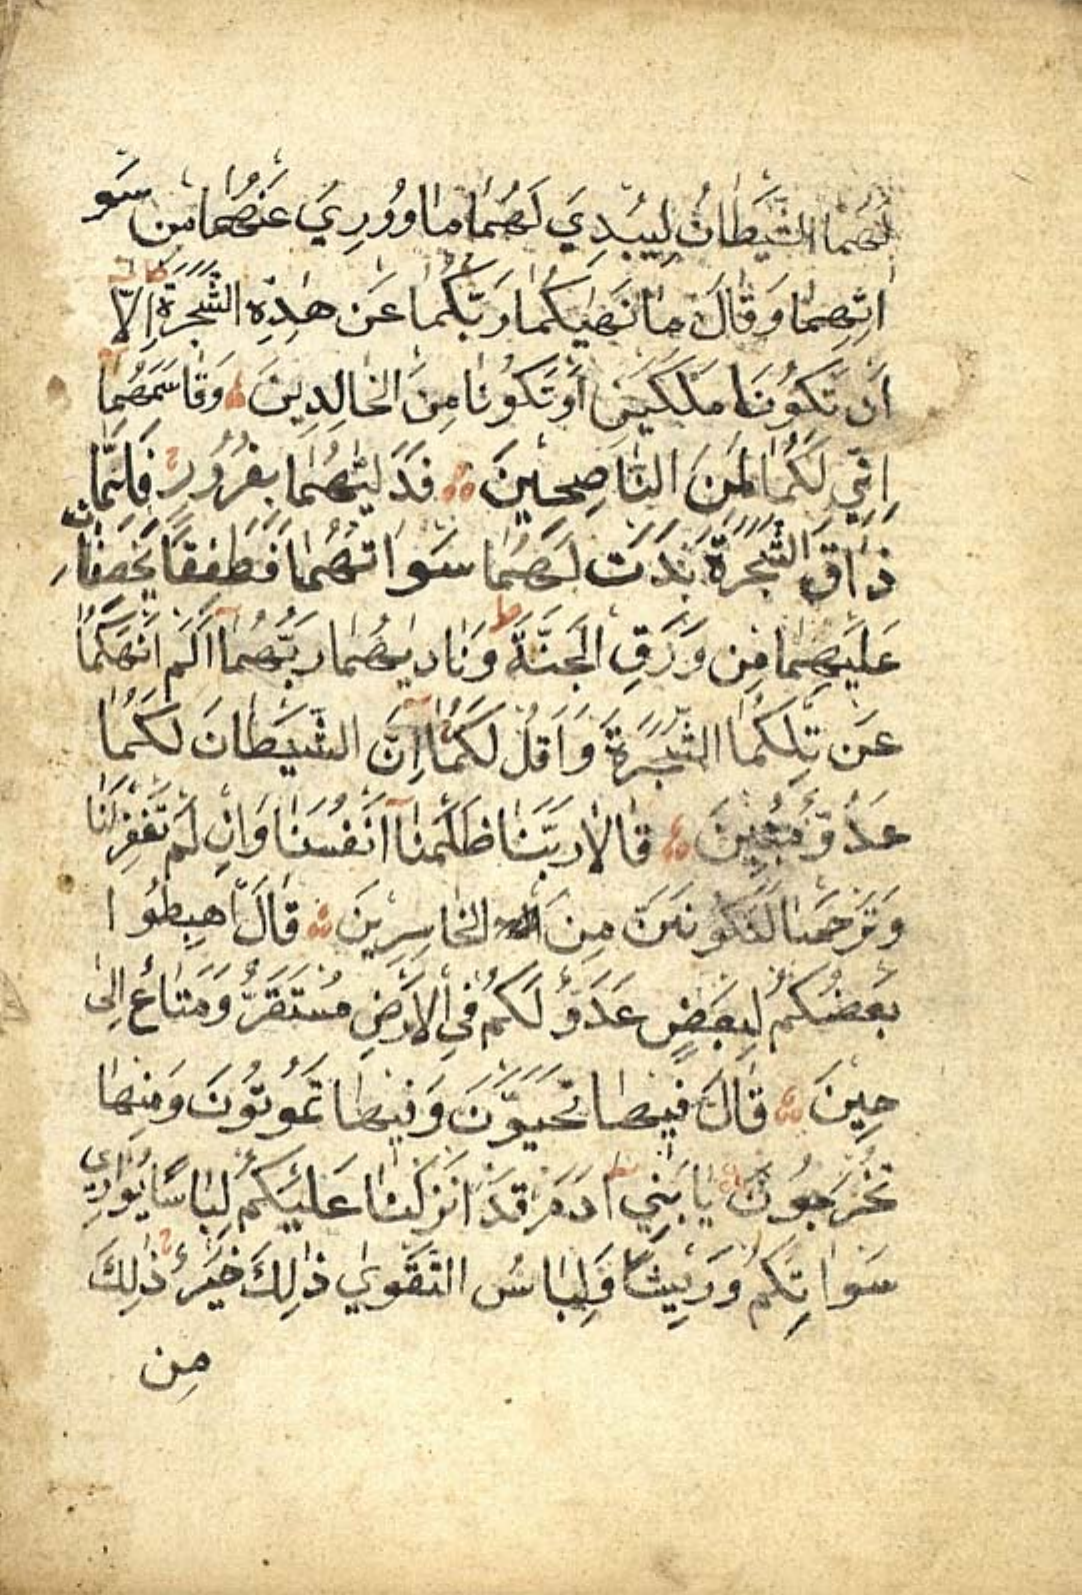 لَهُمَا الشَّيْطَانُ لِيُبْدِيَ لَهُمَا مَا وُورِيَ عَنْهُمَا مِنْ سَو
اتِهِمَا وَقَالَ مَا نَهٰيكُمَا رَبُّكُمَا عَنْ هٰذِهِ الشَّجَرَةِ اِلَّا
اَنْ تَكُونَا مَلَكَيْنِ اَوْ تَكُونَا مِنَ الْخَالِدِينَ وَقَاسَمَهُمَا
اِنِّي لَكُمَا لَمِنَ النَّاصِحِينَ فَدَلّٰيهُمَا بِغُرُورٍ فَلَمَّا
ذَاقَ الشَّجَرَةَ بَدَتْ لَهُمَا سَوْاتُهُمَا فَطَفِقَا يَخْصِفَانِ
عَلَيْهِمَا مِنْ وَرَقِ الْجَنَّةِ وَنَادٰيهُمَا رَبُّهُمَا اَلَمْ اَنْهَكُمَا
عَنْ تِلْكُمَا الشَّجَرَةِ وَاَقُلْ لَكُمَا اِنَّ الشَّيْطَانَ لَكُمَا
عَدُوٌّ مُبِينٌ قَالَا رَبَّنَا ظَلَمْنَا اَنْفُسَنَا وَاِنْ لَمْ تَغْفِرْ لَنَا
وَتَرْحَمْنَا لَنَكُونَنَّ مِنَ الْخَاسِرِينَ قَالَ اهْبِطُوا
بَعْضُكُمْ لِبَعْضٍ عَدُوٌّ لَكُمْ فِي الْاَرْضِ مُسْتَقَرٌّ وَمَتَاعٌ اِلٰى
حِينَ قَالَ فِيهَا تَحْيَوْنَ وَفِيهَا تَمُوتُونَ وَمِنْهَا
تُخْرَجُونَ يَا بَنِي ادَمَ قَدْ اَنْزَلْنَا عَلَيْكُمْ لِبَاسًا يُوَارِي
سَوْاتِكُمْ وَرِيشًا وَلِبَاسُ التَّقْوٰي ذٰلِكَ خَيْرٌ ذٰلِكَ
مِن